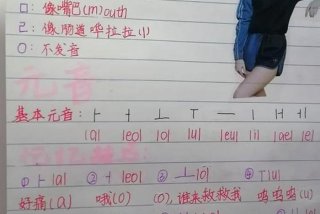 口: 像嘴巴(m)outh
己: 像肠道哗拉拉(l)
O: 不发音
元音
基本元音: ㅏ ㅓ ㅗ ㅜ ㅡ ㅣ ㅐ ㅔ
|a| |eo| |o| |u| |eu| |i| |ae| |e|
① ㅏ|a| ② ㅓ|eo| ③ ㅗ|o| ④ ㅜ|u|
好痛(a) 哦(o) (o),谁来救救我 呜呜呜(u)